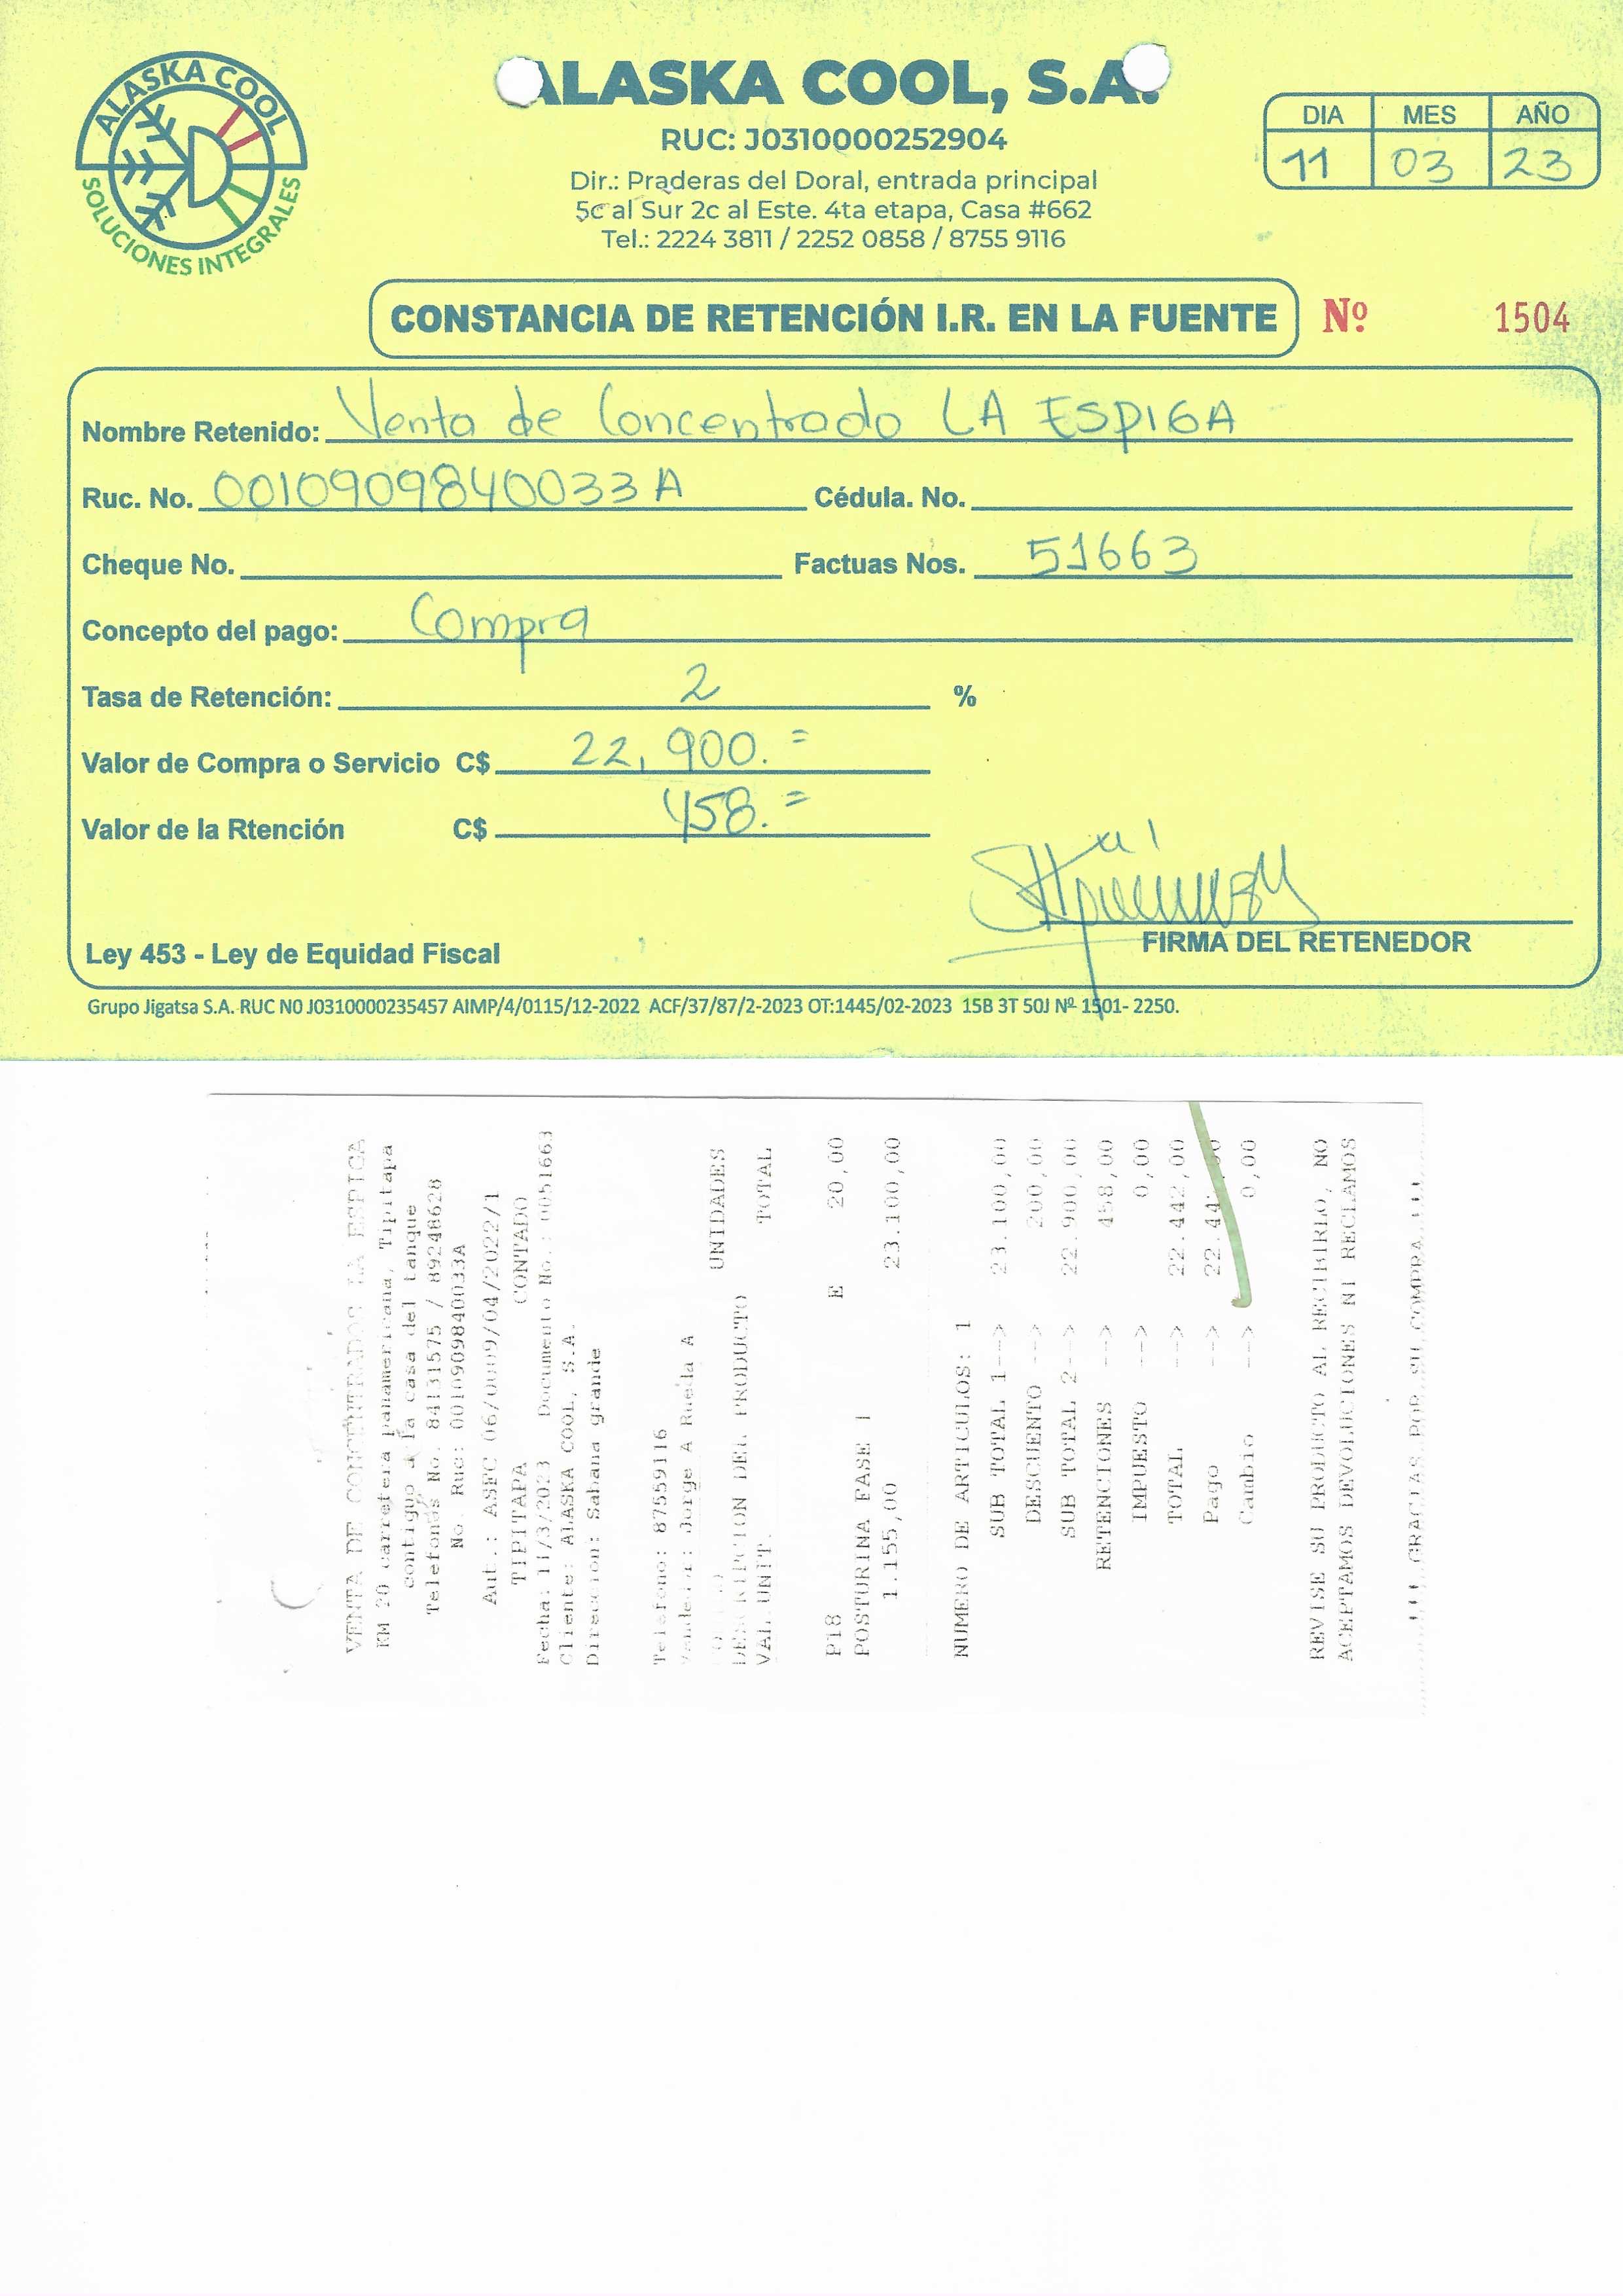 ALASKA COOL
SOLUCIONES INTEGRALES
ALASKA COOL, S.A.
RUC: J0310000252904
Dir.: Praderas del Doral, entrada principal
5c al Sur 2c al Este. 4ta etapa, Casa #662
Tel.: 2224 3811 / 2252 0858 / 8755 9116
DIA MES AÑO
11 03 23
CONSTANCIA DE RETENCIÓN I.R. EN LA FUENTE Nº 1504
Nombre Retenido: Venta de Concentrado LA ESPIGA
Ruc. No. 0010909840033A Cédula. No.
Cheque No. Factuas Nos. 51663
Concepto del pago: Compra
Tasa de Retención: 2 %
Valor de Compra o Servicio C$ 22,900.=
Valor de la Rtención C$ 458.=
FIRMA DEL RETENEDOR
Ley 453 - Ley de Equidad Fiscal
Grupo Jigatsa S.A. RUC N0 J0310000235457 AIMP/4/0115/12-2022 ACF/37/87/2-2023 OT:1445/02-2023 15B 3T 50J Nº 1501- 2250.
VENTA DE CONCENTRADOS LA ESPIGA
KM 20 carretera panamericana, Tipitapa
contiguo a la casa del tanque
Telefonos No. 84131575 / 89248628
No. Ruc: 0010909840033A
Aut.: ASFC 06/0009/04/2022/1
TIPITAPA
CONTADO
Fecha: 11/3/2023 Documento No.: 0051663
Cliente: ALASKA COOL, S.A.
Direccion: Sabana grande
Telefono: 87559116
Vendedor: Jorge A Rueda A
UNIDADES
DESCRIPCION DEL PRODUCTO
VAL.UNIT. TOTAL
P18 E 20,00
POSTURINA FASE 1
1.155,00 23.100,00
NUMERO DE ARTICULOS: 1
SUB TOTAL 1---> 23.100,00
DESCUENTO ---> 200,00
SUB TOTAL 2---> 22.900,00
RETENCIONES ---> 458,00
IMPUESTO ---> 0,00
TOTAL ---> 22.442,00
Pago --->
Cambio ---> 0,00
REVISE SU PRODUCTO AL RECIBIRLO, NO
ACEPTAMOS DEVOLUCIONES NI RECLAMOS
!!! GRACIAS POR SU COMPRA !!!